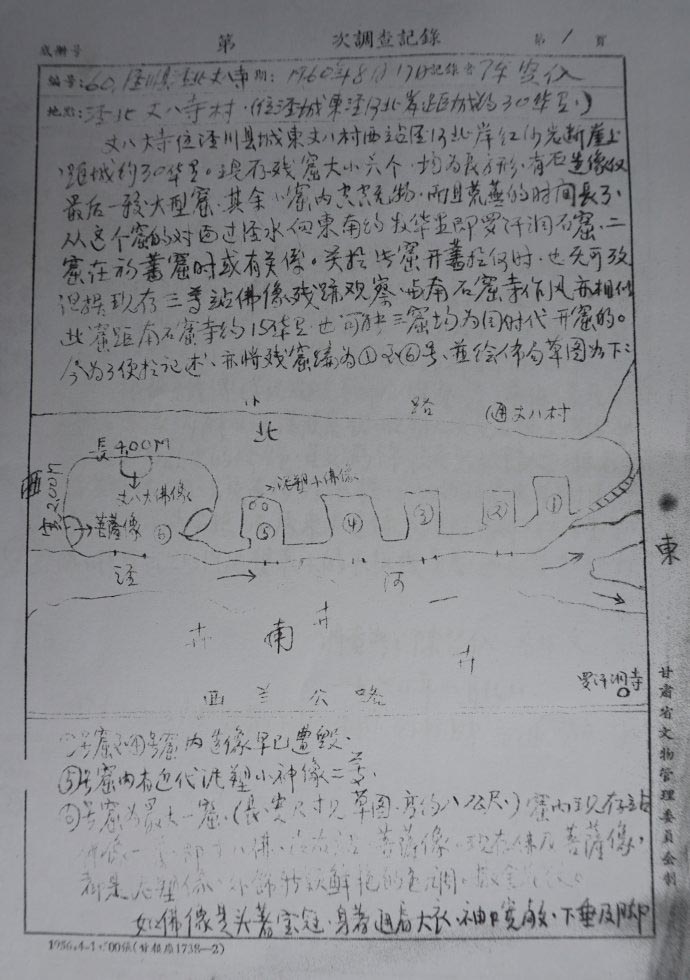 成辦号 第 次調查記錄 第 1 頁
編号:60.泾川县泾北丈八寺 日期:1960年8月17日 記錄者
地點:泾北丈八寺村.(位泾城東泾河北岸距城约30华里.)
丈八大寺位泾川县城東丈八村西站泾河北岸红沙岩断崖上
距城约30华里。現存残窟大小六个.均为長方形.有石造像仅
最后一较大型窟.其余小窟内空空无物.而且荒蕪的时间長了.
从这个窟的对面过泾水向東南约数华里即罗汗洞石窟.二
窟在初凿窟时或有关係。关於此窟开凿於何时.也无可攷
現存三尊站佛像残跡观察.与南石窟寺作风亦相似
此窟距南石窟寺约15华里也可能三窟均为同时代开窟的。
今为了便於记述.亦将残窟编为①至⑥号.並绘佈局草图如下:
小 路 (通丈八村
北
長4.00M
西
宽2.00M
丈八大佛像
菩薩像
泥塑小佛像
⑥ ⑤ ④ ③ ② ①
泾 河
東
南
西兰公路
罗汗洞寺
①号窟至④号窟内造像早已遭毁.
⑤号窟内有近代泥塑小神像二尊.
⑥号窟为最大一窟.(長.宽尺寸见草图.高约八公尺.)窟内現存站
菩薩像.現存佛及菩薩像.
都是石塑像.
如佛像是头著宝冠.身著通肩大衣.袖口宽敞.下垂及脚
甘肅省文物管理委員会制
1956.4.1.